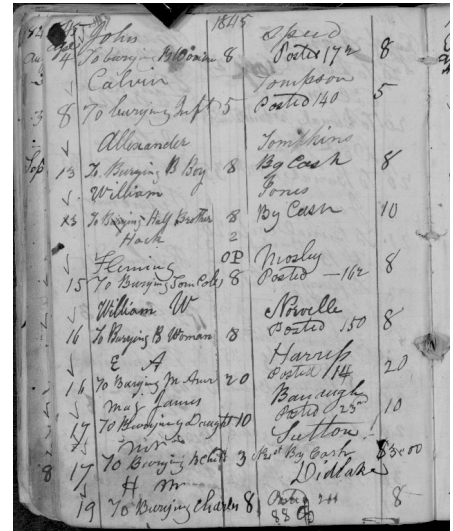 1845
John Speed
Au 4 To burying B Woman 8 Posted 172 8
Calvin Tompson
8 To burying Inft 5 Posted 140 5
Allexander Tompkins
Sep 13 To Burying B Boy 8 By Cash 8
William Jones
To Burying Half Brother 8 By Cash 10
Hack 2
Fleming OP Mosley
15 To Burying Tom Cole 8 Posted 162 8
William W Norvelle
16 To Burying B Woman 8 Posted 150 8
E A Harriss
16 To Burying M 20 Posted 14 20
Maj James
17 To Burying Daught 10 Posted 23 10
Sutton
17 To Burying 3 By Cash $3.00
H M Didlake
19 To Burying Charles 8 8